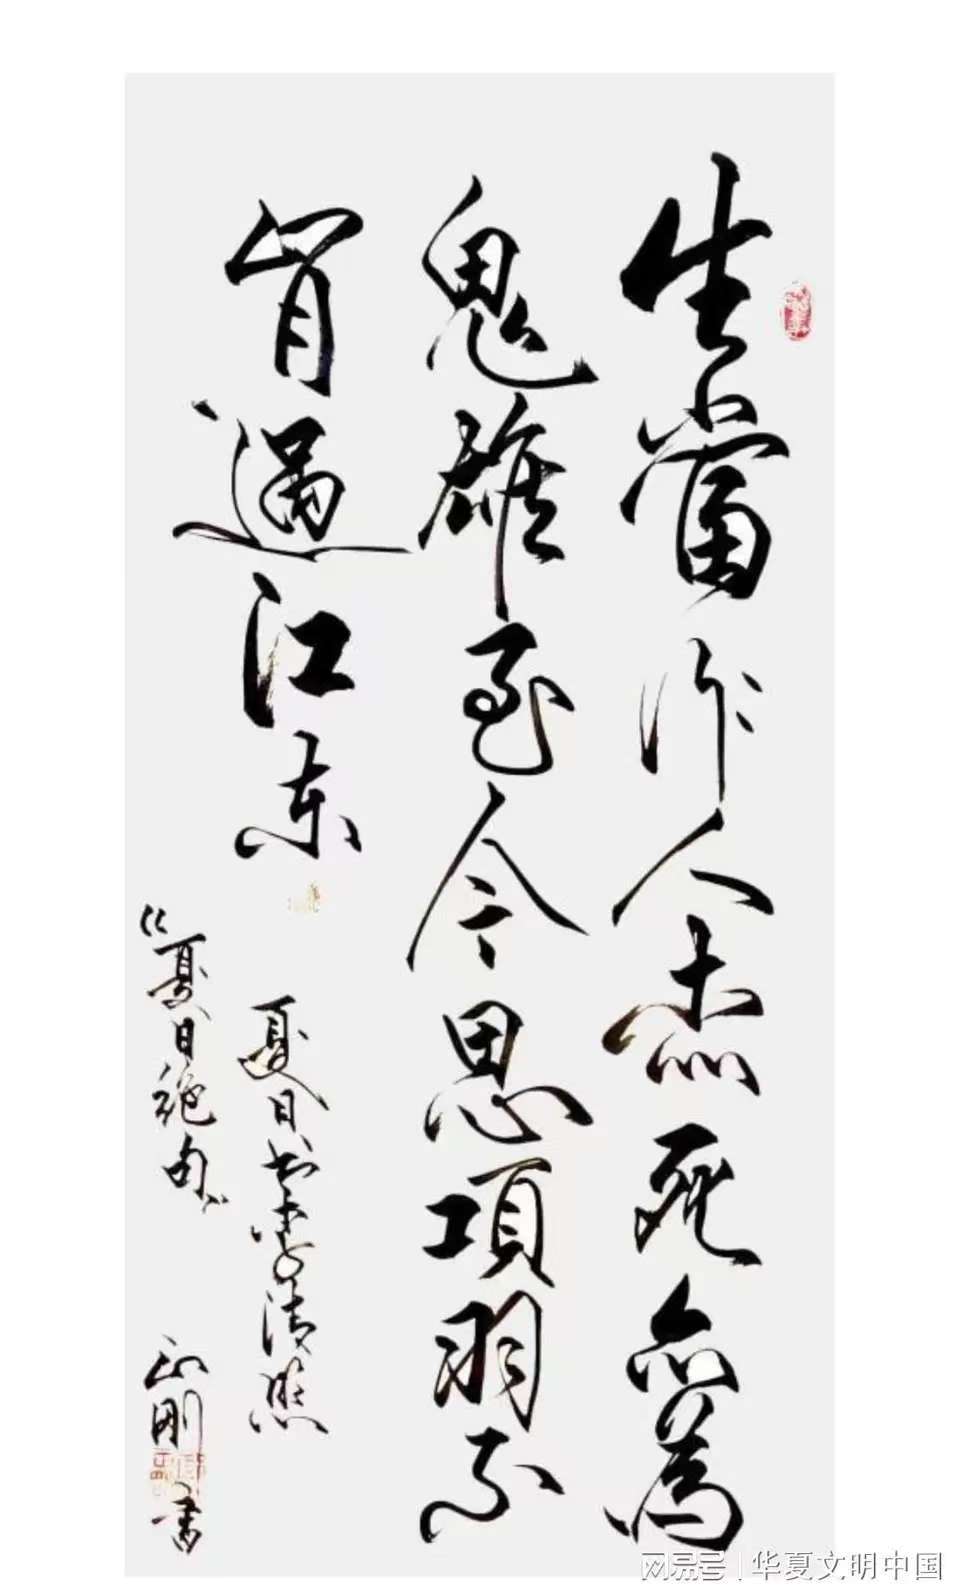 生當作人杰死亦為
鬼雄至今思項羽不
肯過江东
夏日书李清照
《夏日绝句》
正刚书
网易号 | 华夏文明中国